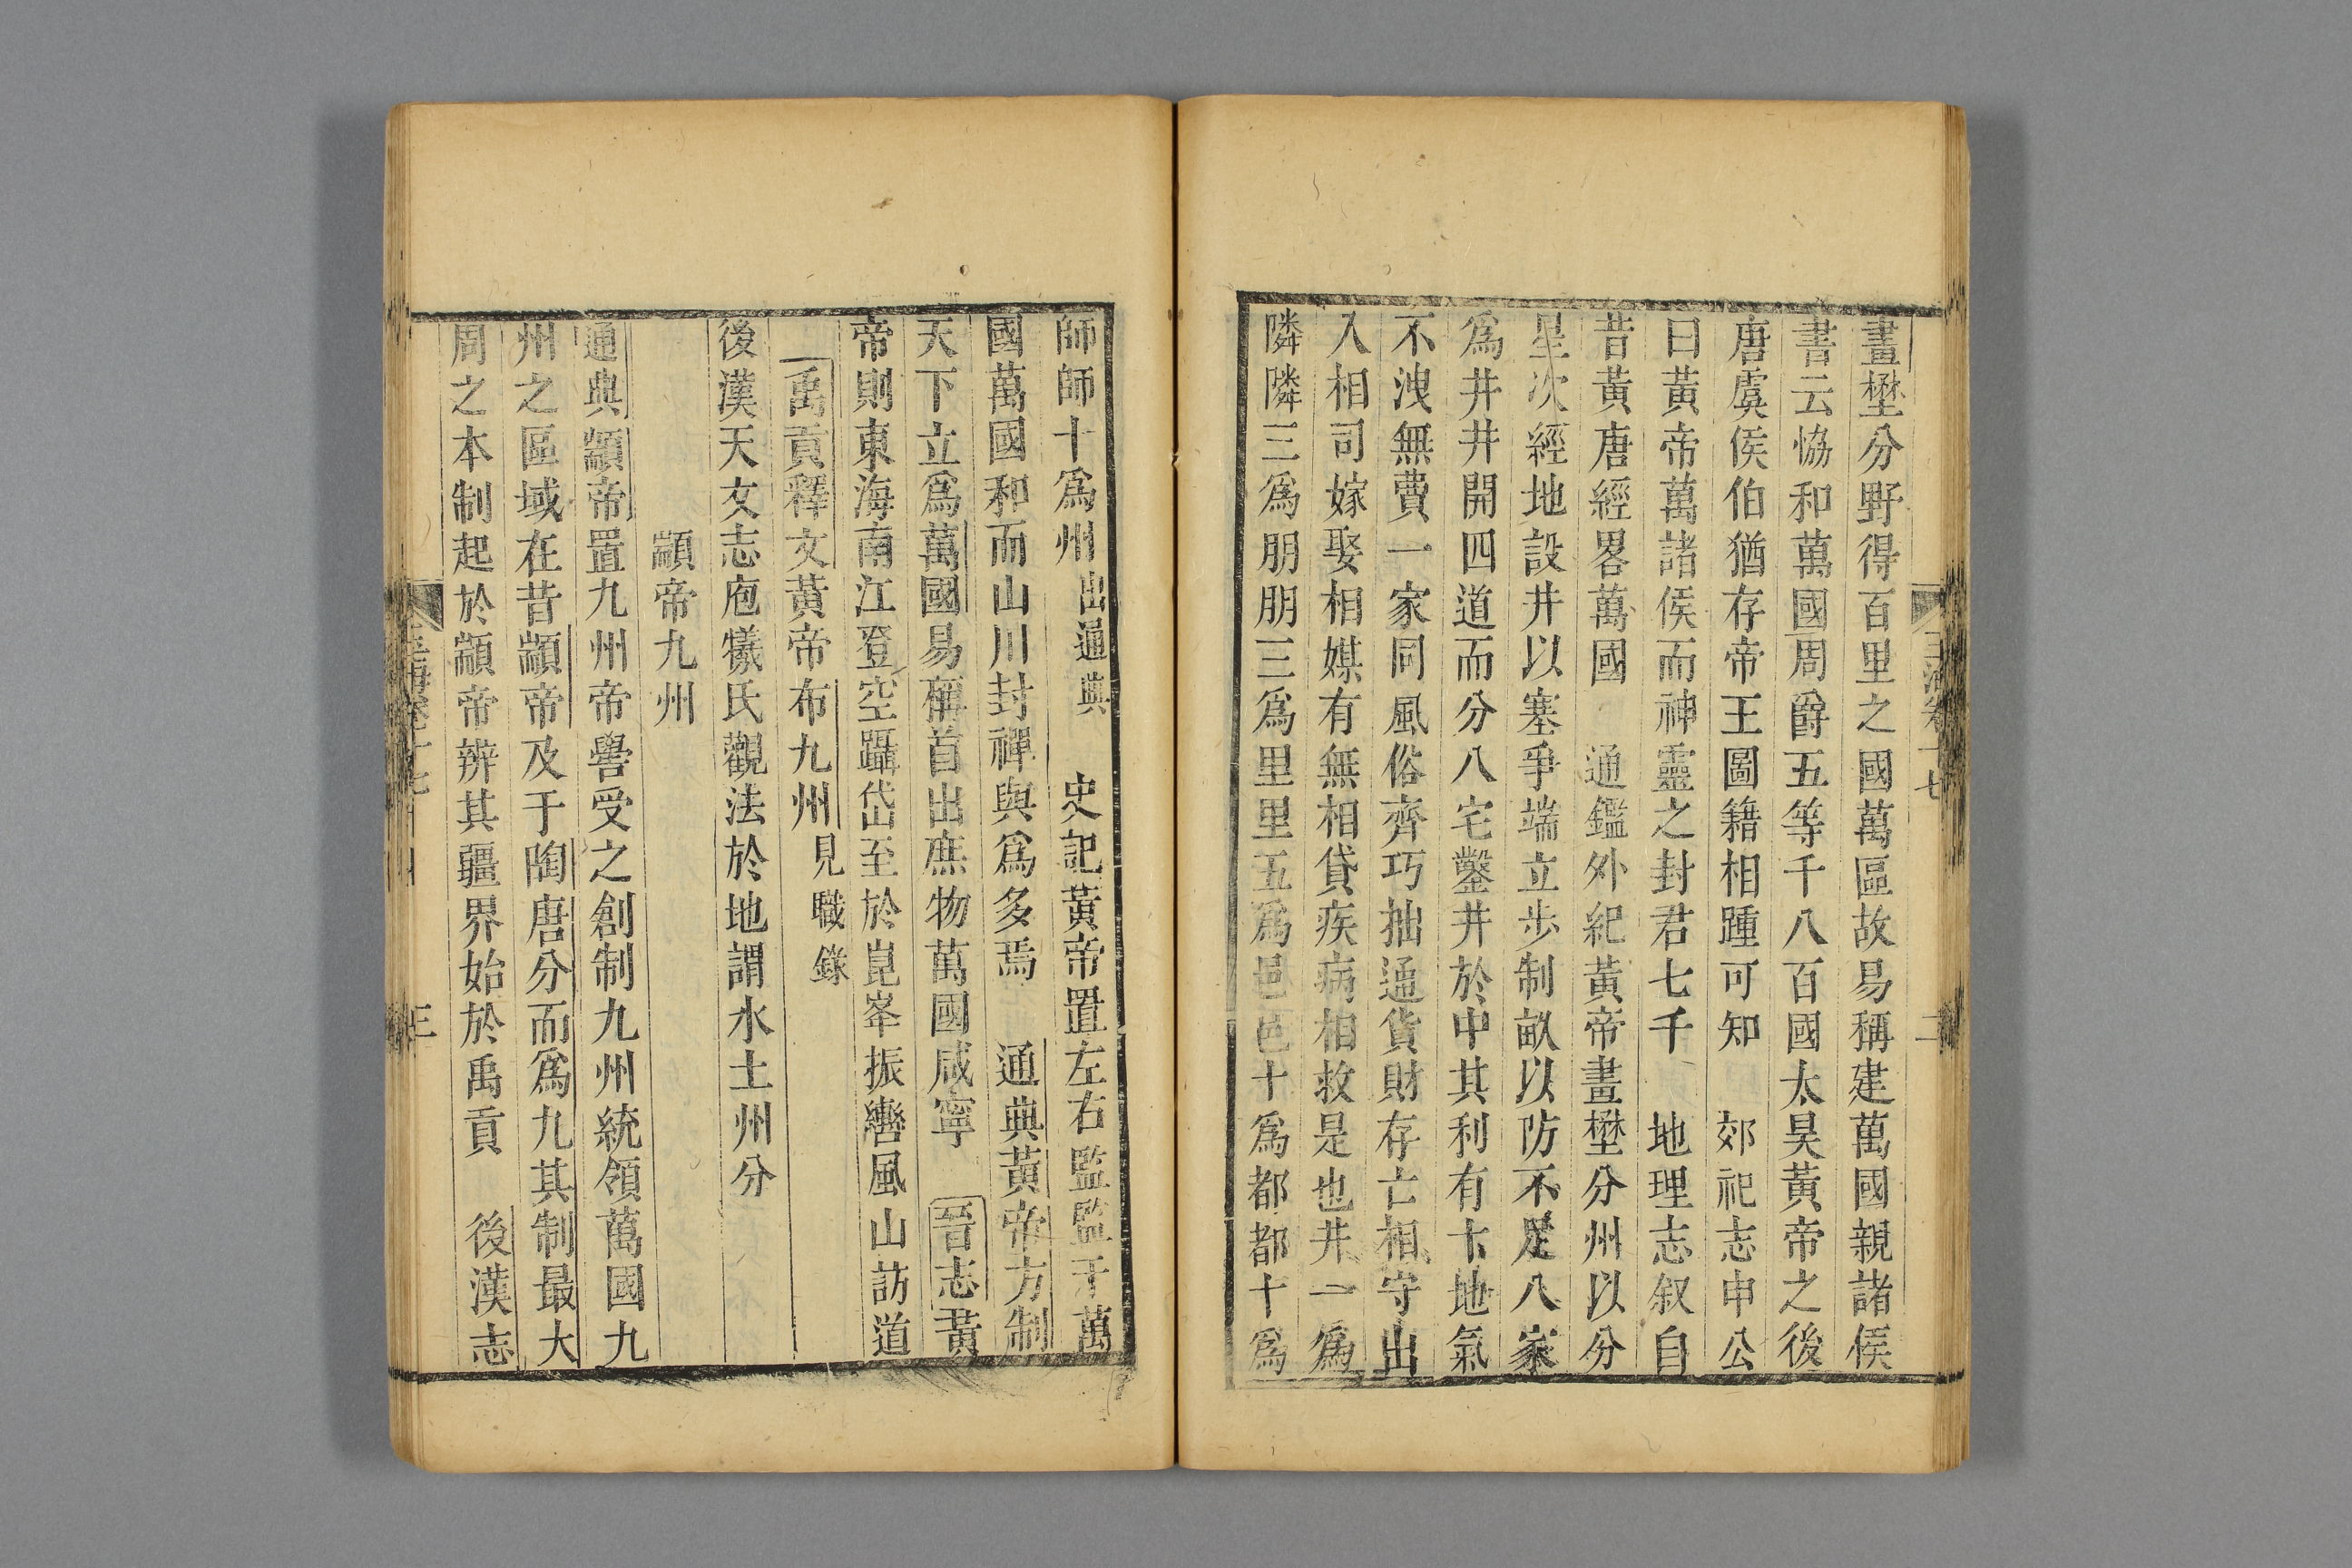 畫壄分野得百里之國萬區故易稱建萬國親諸侯
書云恊和萬國周爵五等千八百國太昊黃帝之後
唐虞侯伯猶存帝王圖籍相踵可知 郊祀志申公
曰黃帝萬諸侯而神靈之封君七千 地理志叙自
昔黃唐經畧萬國 通鑑外紀黃帝畫壄分州以分
星次經地設井以塞爭端立步制畝以防不足八家
爲井井開四道而分八宅鑿井於中其利有十地氣
不洩無費一家同風俗齊巧拙通貨財存亡相守出
入相司嫁娶相媒有無相貸疾病相救是也井一爲
隣隣三爲朋朋三爲里里五爲邑邑十爲都都十爲
師師十爲州出通典 史記黃帝置左右監監于萬
國萬國和而山川封禪與爲多焉 通典黃帝方制
天下立爲萬國易稱首出庶物萬國咸寧 晉志黃
帝則東海南江登空躡岱至於崑峯振轡風山訪道
禹貢釋文黃帝布九州見職錄
後漢天文志庖犧氏觀法於地謂水土州分
顓帝九州
通典顓帝置九州帝嚳受之創制九州統領萬國九
州之區域在昔顓帝及于陶唐分而爲九其制最大
周之本制起於顓帝辨其疆界始於禹貢 後漢志
玉海卷十七 二
玉海卷十七 三